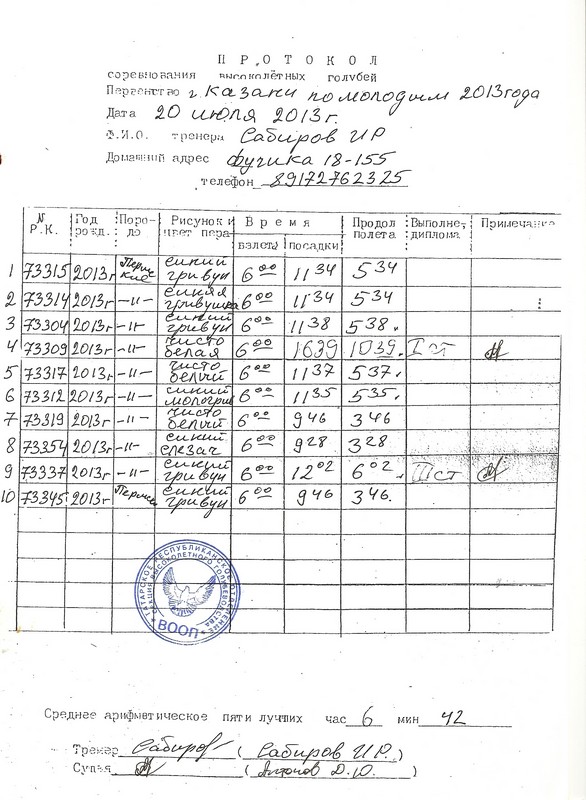 ПРОТОКОЛ
соревнования высоколётных голубей
Первенство г. Казани по молодым 2013 года
Дата 20 июля 2013 г.
Ф.И.О. тренера Сабиров И Р
Домашний адрес Фучика 18-155
телефон 89172762325
N Р.К. Год рожд. Поро-до Рисунок и цвет пера Время Продол полета Выполне. диплома Примечание
взлета посадки
1 73315 2013г Пермские синий гривун 6 00 11 34 5 34
2 73314 2013г -"- синяя гривушка 6 00 11 34 5 34
3 73304 2013г -"- синий гривун 6 00 11 38 5 38.
4 73309 2013г -"- чисто белая 6 00 16 39 10 39. I ст
5 73317 2013г -"- чисто белый 6 00 11 37 5 37.
6 73312 2013г -"- синий 6 00 11 35 5 35.
7 73319 2013г -"- чисто белый 6 00 9 46 3 46
8 73354 2013г -"- синий 6 00 9 28 3 28
9 73337 2013г -"- синий гривун 6 00 12 02 6 02. III ст
10 73345 2013г синий гривун 6 00 9 46 3 46.
ТАТАРСКОЕ РЕСПУБЛИКАНСКОЕ ОТДЕЛЕНИЕ
СЕКЦИЯ ВЫСОКОЛЕТНОГО ГОЛУБЕВОДСТВА
ВООП
Среднее арифметическое пяти лучших час 6 мин 42
Тренер Сабиров (Сабиров И.Р.)
Судья (Антонов Д.Ю.)